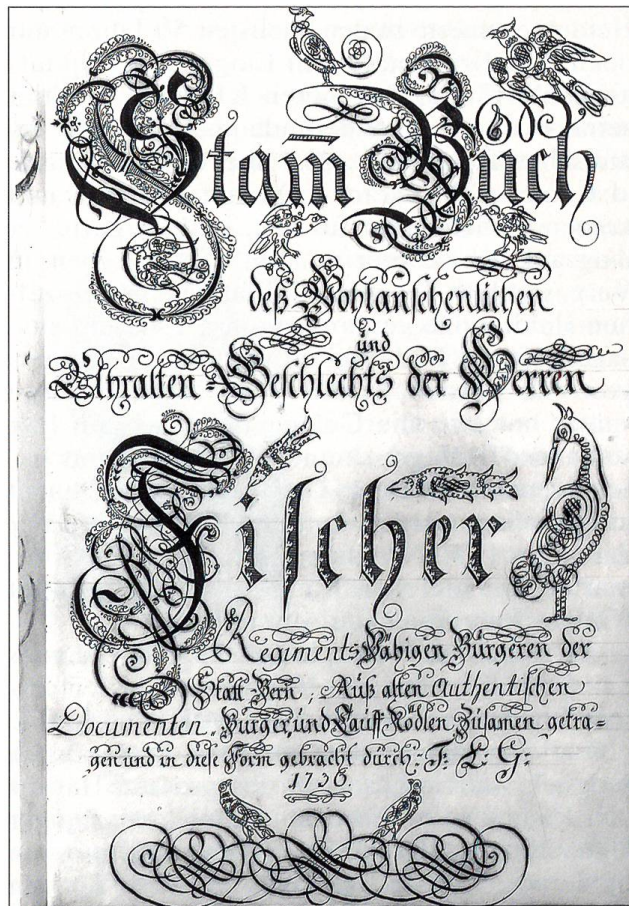 Stam̄ Bůch
deß Wohlansehenlichen
und
Uhralten-Geschlechts der Herren
Fischer
Regiments Vähigen Bürgeren der
Statt Bern, Auß alten Authentischen
Documenten, Bürger, und Tauff Rödlen Zusamen getra-
gen und in diese Form gebracht durch: F: L: G:
1736.